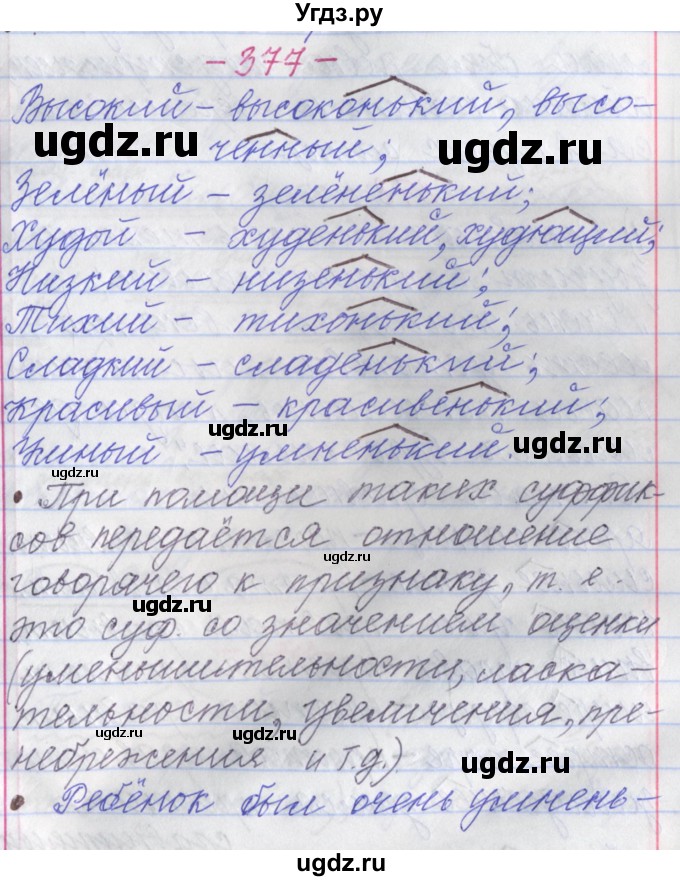 Угдз.ру
- 377 -
Высокий - высоконький, высо-
ugdz.ru ченный; ugdz.ru
Зелёный - зелёненький;
Худой - худенький, худющий;
Низкий - низенький;
Тихий - тихонький;
Сладкий - сладенький;
Красивый - красивенький;
ugdz.ru
Умный - умненький.
ugdz.ru
• При помощи таких суффик-
сов передаётся отношение
ugdz.ru
говорящего к признаку, т. е.
ugdz.ru
это суф. со значением оценки
(уменьшительности, ласка-
тельности, увеличения, пре-
ugdz.ru
небрежения и т.д.)
ugdz.ru
• Ребёнок был очень умнень-
ugdz.ru